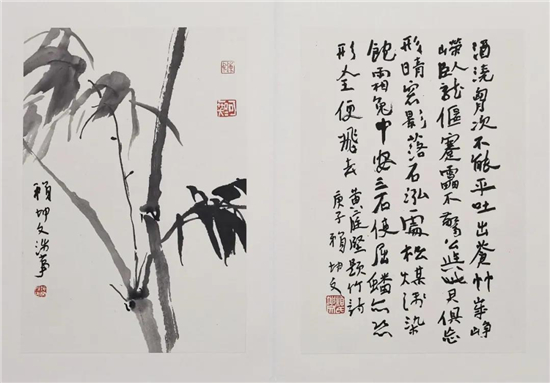 酒澆胸次不能平吐出蒼竹歲崢
嶸臥龍偃蹇雷不驚公與此君俱忘
形晴窓影落石泓處松煤淺染
飽霜兔中安三石使屈蟠亦恐
形全便飛去 黃庭堅題竹詩
庚子賴坤文
賴坤文涉筆